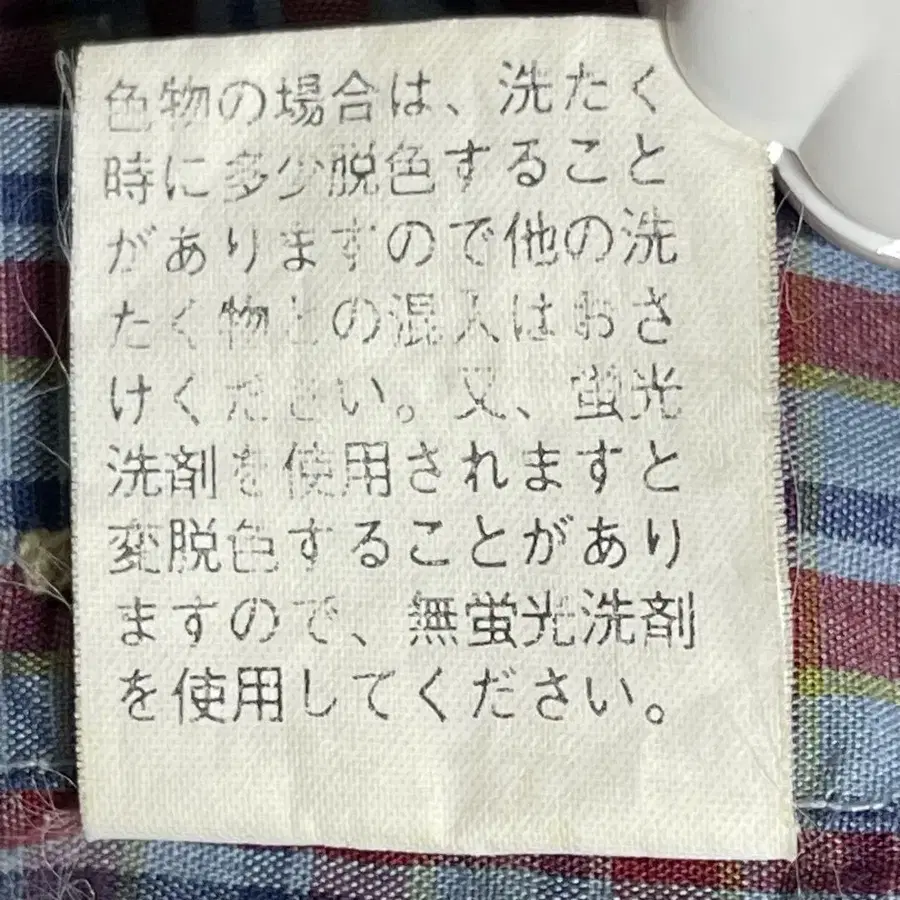 色物の場合は、洗たく
時に多少脱色すること
がありますので他の洗
たく物との混入はおさ
けください。又、蛍光
洗剤を使用されますと
変脱色することがあり
ますので、無蛍光洗剤
を使用してください。